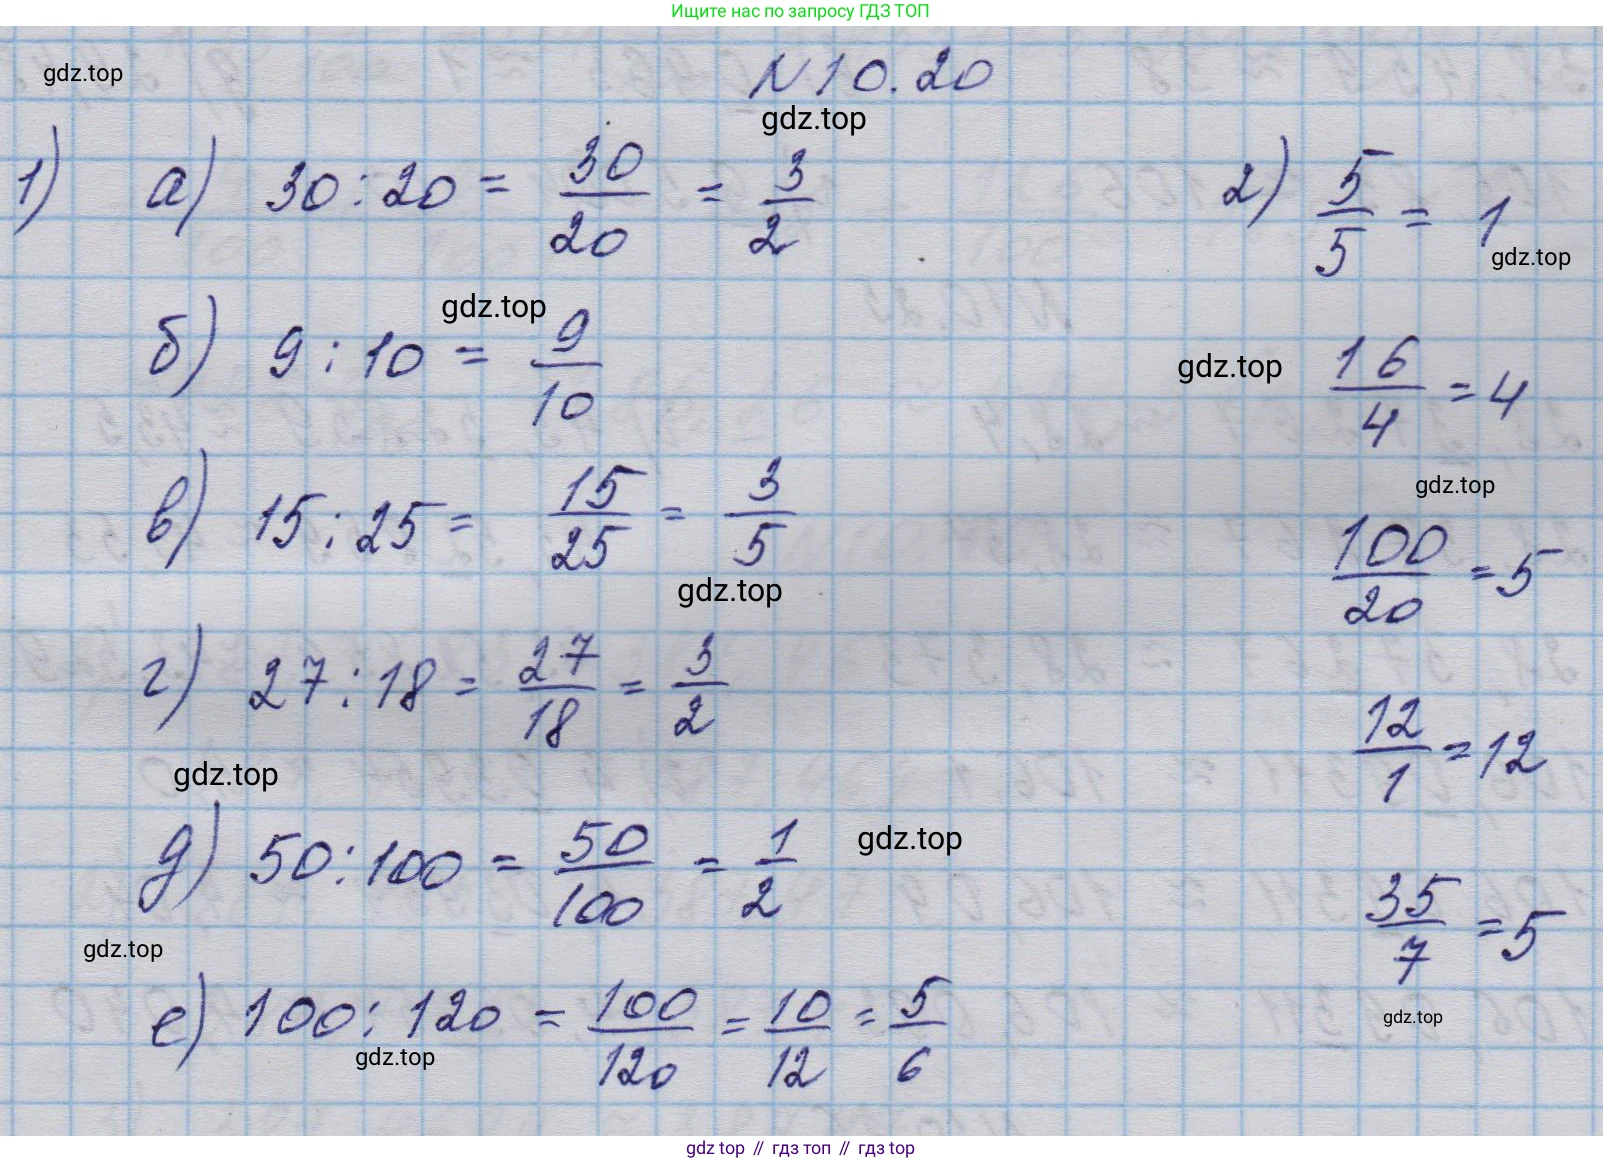 Ищите нас по запросу ГДЗ ТОП
N 10.20
gdz.top
gdz.top
1) а) 30 : 20 = 30/20 = 3/2
б) 9 : 10 = 9/10
gdz.top
в) 15 : 25 = 15/25 = 3/5
gdz.top
г) 27 : 18 = 27/18 = 3/2
gdz.top
д) 50 : 100 = 50/100 = 1/2
gdz.top
gdz.top
е) 100 : 120 = 100/120 = 10/12 = 5/6
gdz.top
2) 5/5 = 1
gdz.top
16/4 = 4
gdz.top
gdz.top
100/20 = 5
12/1 = 12
35/7 = 5
gdz.top
gdz top // гдз топ // gdz top